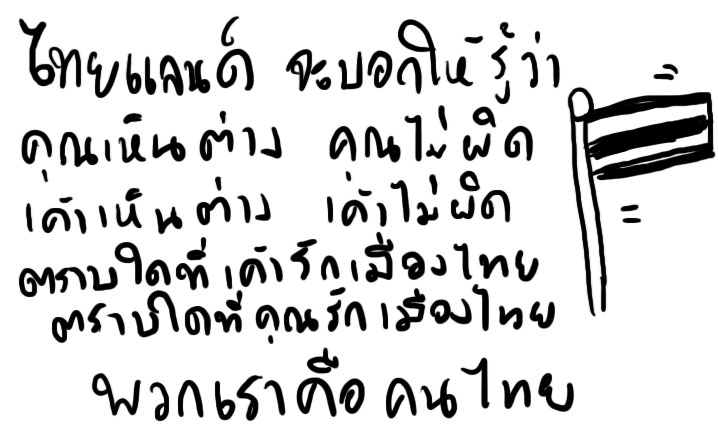 ไทยแลนด์ จะบอกให้รู้ว่า
คุณเห็นต่าง คุณไม่ผิด
เค้าเห็นต่าง เค้าไม่ผิด
ตราบใดที่เค้ารักเมืองไทย
ตราบใดที่คุณรักเมืองไทย
พวกเราคือคนไทย